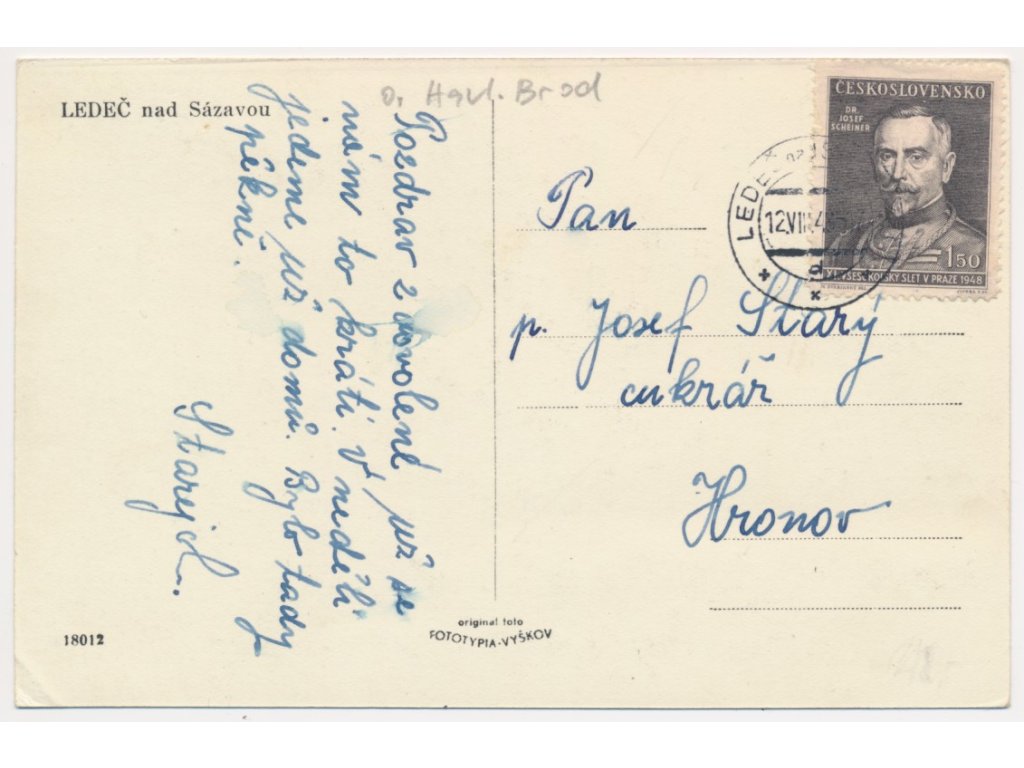 LEDEČ nad Sázavou
o. Havl. Brod
Pozdrav z dovolené už se
nám to krátí. V neděli
jedeme už domů. Bylo tady
pěkně.
ČESKOSLOVENSKO
DR.
JOSEF
SCHEINER
1.50
XI. VŠESOKOLSKÝ SLET V PRAZE 1948
LEDEČ
12.VIII.4
Pan
p. Josef Starý
cukrář
Hronov
original foto
FOTOTYPIA-VYŠKOV
18012